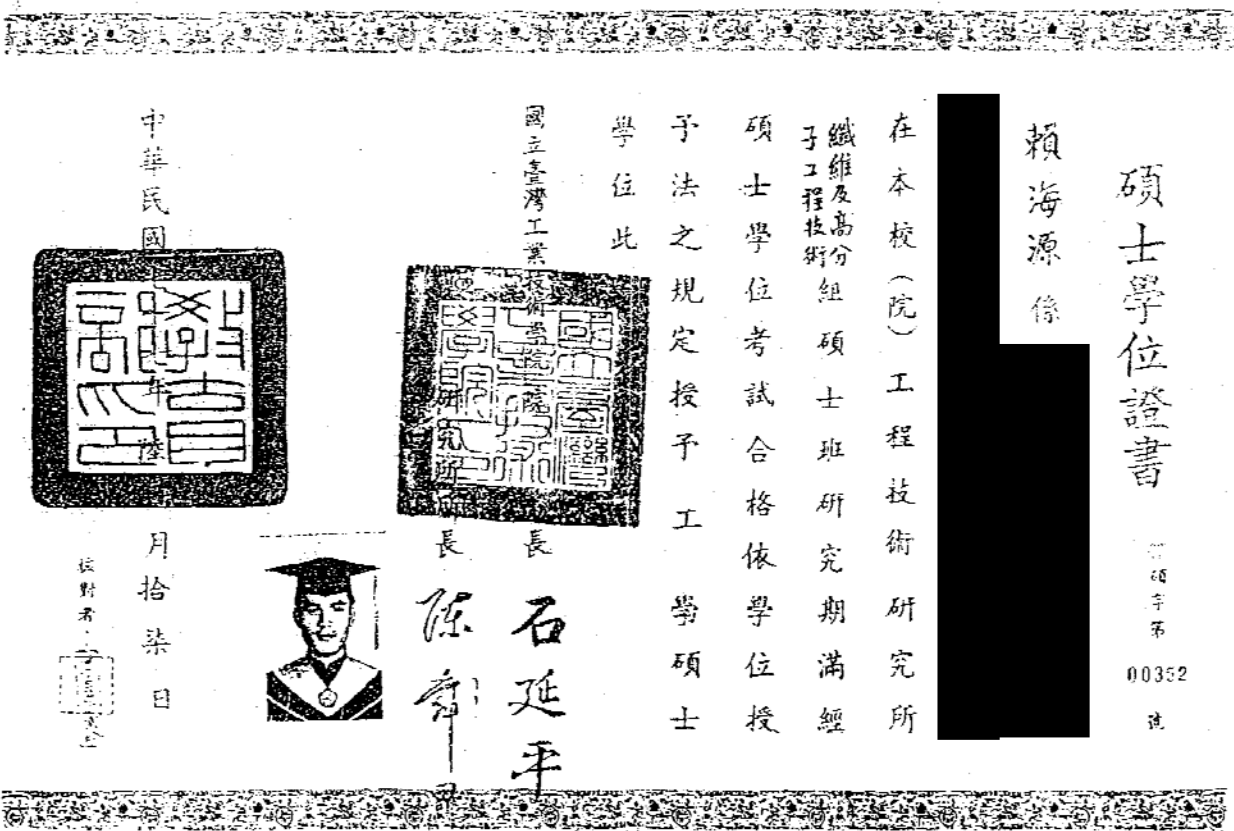 碩士學位證書
碩字第00352號
賴海源係
在本校(院)工程技術研究所
纖維及高分
子工程技術
組碩士班研究期滿經
碩士學位考試合格依學位授
予法之規定授予工學碩士
學位此
國立臺灣工業技術學院院長 石延平
研究所所長 陳
中華民國 年陸月拾柒日
核對者